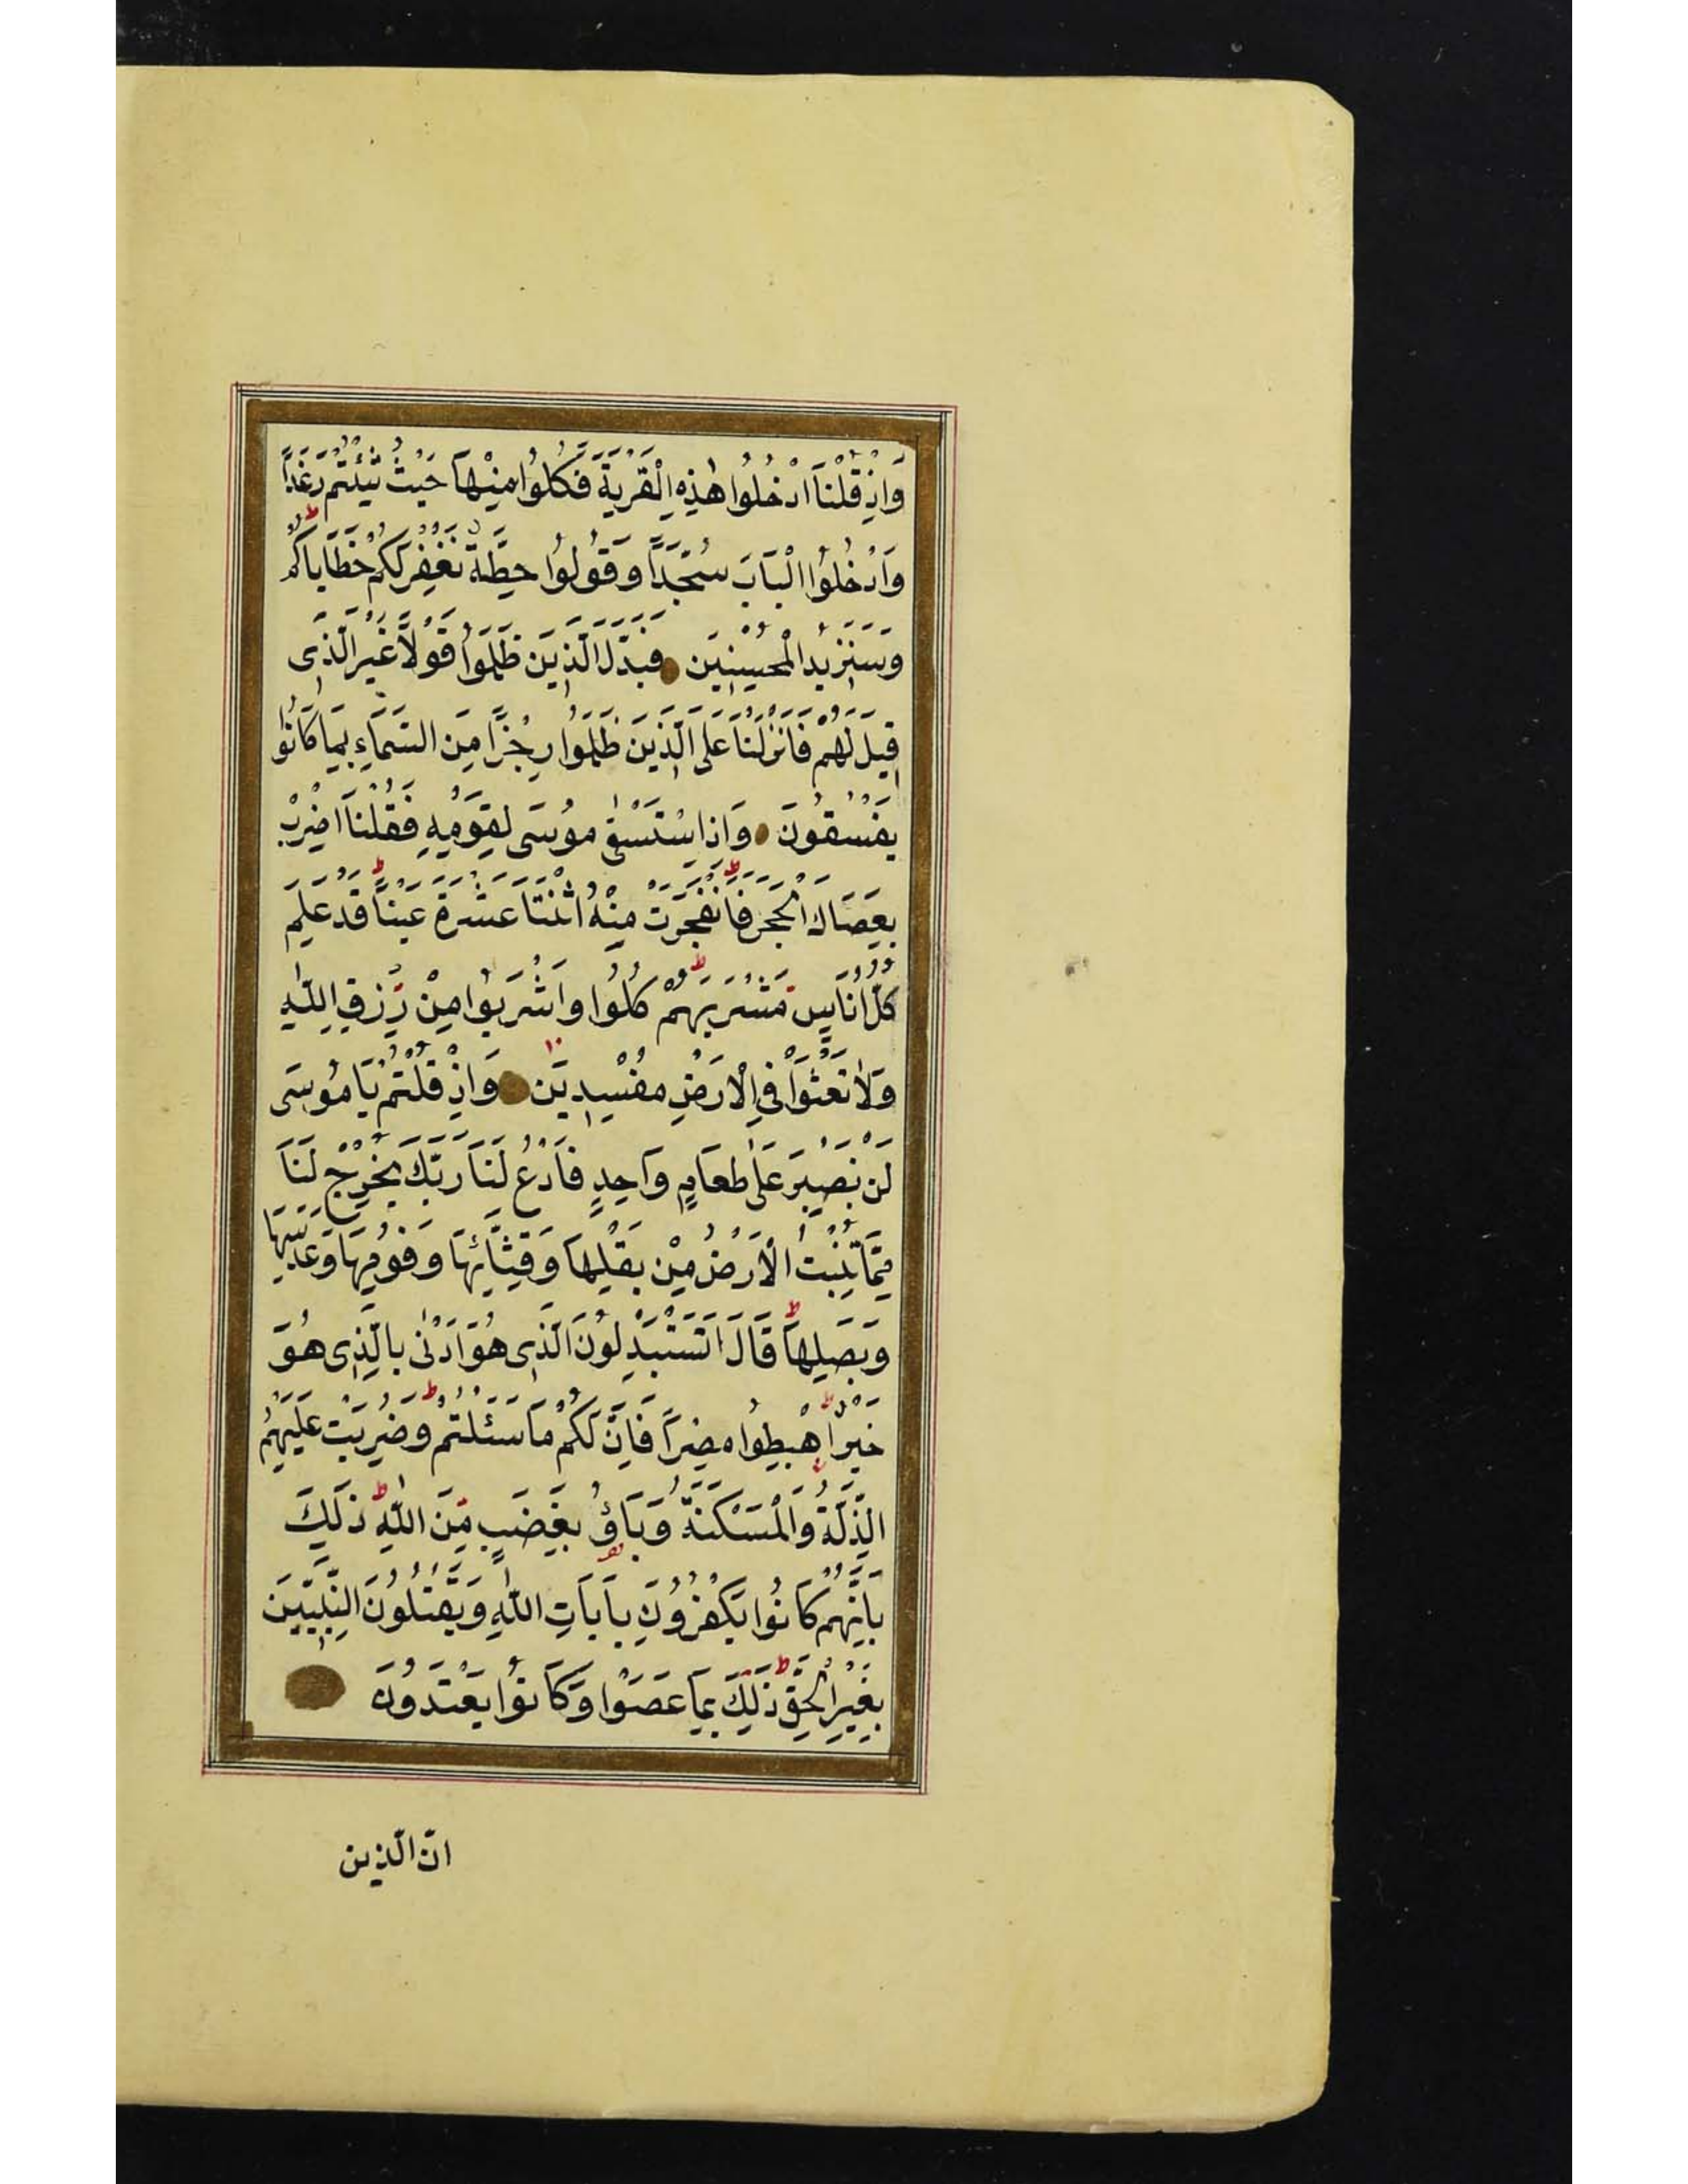 وَاِذْ قُلْنَا ادْخُلُوا هٰذِهِ الْقَرْيَةَ فَكُلُوا مِنْهَا حَيْثُ شِئْتُمْ رَغَدًا
وَادْخُلُوا الْبَابَ سُجَّدًا وَقُولُوا حِطَّةٌ نَغْفِرْ لَكُمْ خَطَايَاكُمْ
وَسَنَزِيدُ الْمُحْسِنِينَ فَبَدَّلَ الَّذِينَ ظَلَمُوا قَوْلًا غَيْرَ الَّذِى
قِيلَ لَهُمْ فَاَنْزَلْنَا عَلَى الَّذِينَ ظَلَمُوا رِجْزًا مِنَ السَّمَاءِ بِمَا كَانُوا
يَفْسُقُونَ وَاِذِ اسْتَسْقٰى مُوسٰى لِقَوْمِهِ فَقُلْنَا اضْرِبْ
بِعَصَاكَ الْحَجَرَ ط فَانْفَجَرَتْ مِنْهُ اثْنَتَا عَشْرَةَ عَيْنًا ط قَدْ عَلِمَ
كُلُّ اُنَاسٍ مَشْرَبَهُمْ ط كُلُوا وَاشْرَبُوا مِنْ رِزْقِ اللّٰهِ
وَلَا تَعْثَوْا فِى الْاَرْضِ مُفْسِدِينَ وَاِذْ قُلْتُمْ يَا مُوسٰى
لَنْ نَصْبِرَ عَلٰى طَعَامٍ وَاحِدٍ فَادْعُ لَنَا رَبَّكَ يُخْرِجْ لَنَا
مِمَّا تُنْبِتُ الْاَرْضُ مِنْ بَقْلِهَا وَقِثَّائِهَا وَفُومِهَا وَعَدَسِهَا
وَبَصَلِهَا ط قَالَ اَتَسْتَبْدِلُونَ الَّذِى هُوَ اَدْنٰى بِالَّذِى هُوَ
خَيْرٌ ط اِهْبِطُوا مِصْرًا فَاِنَّ لَكُمْ مَا سَئَلْتُمْ ط وَضُرِبَتْ عَلَيْهِمُ
الذِّلَّةُ وَالْمَسْكَنَةُ وَبَاؤُ بِغَضَبٍ مِنَ اللّٰهِ ط ذٰلِكَ
بِاَنَّهُمْ كَانُوا يَكْفُرُونَ بِاٰيَاتِ اللّٰهِ وَيَقْتُلُونَ النَّبِيِّينَ
بِغَيْرِ الْحَقِّ ط ذٰلِكَ بِمَا عَصَوْا وَكَانُوا يَعْتَدُونَ
انّ الّذين